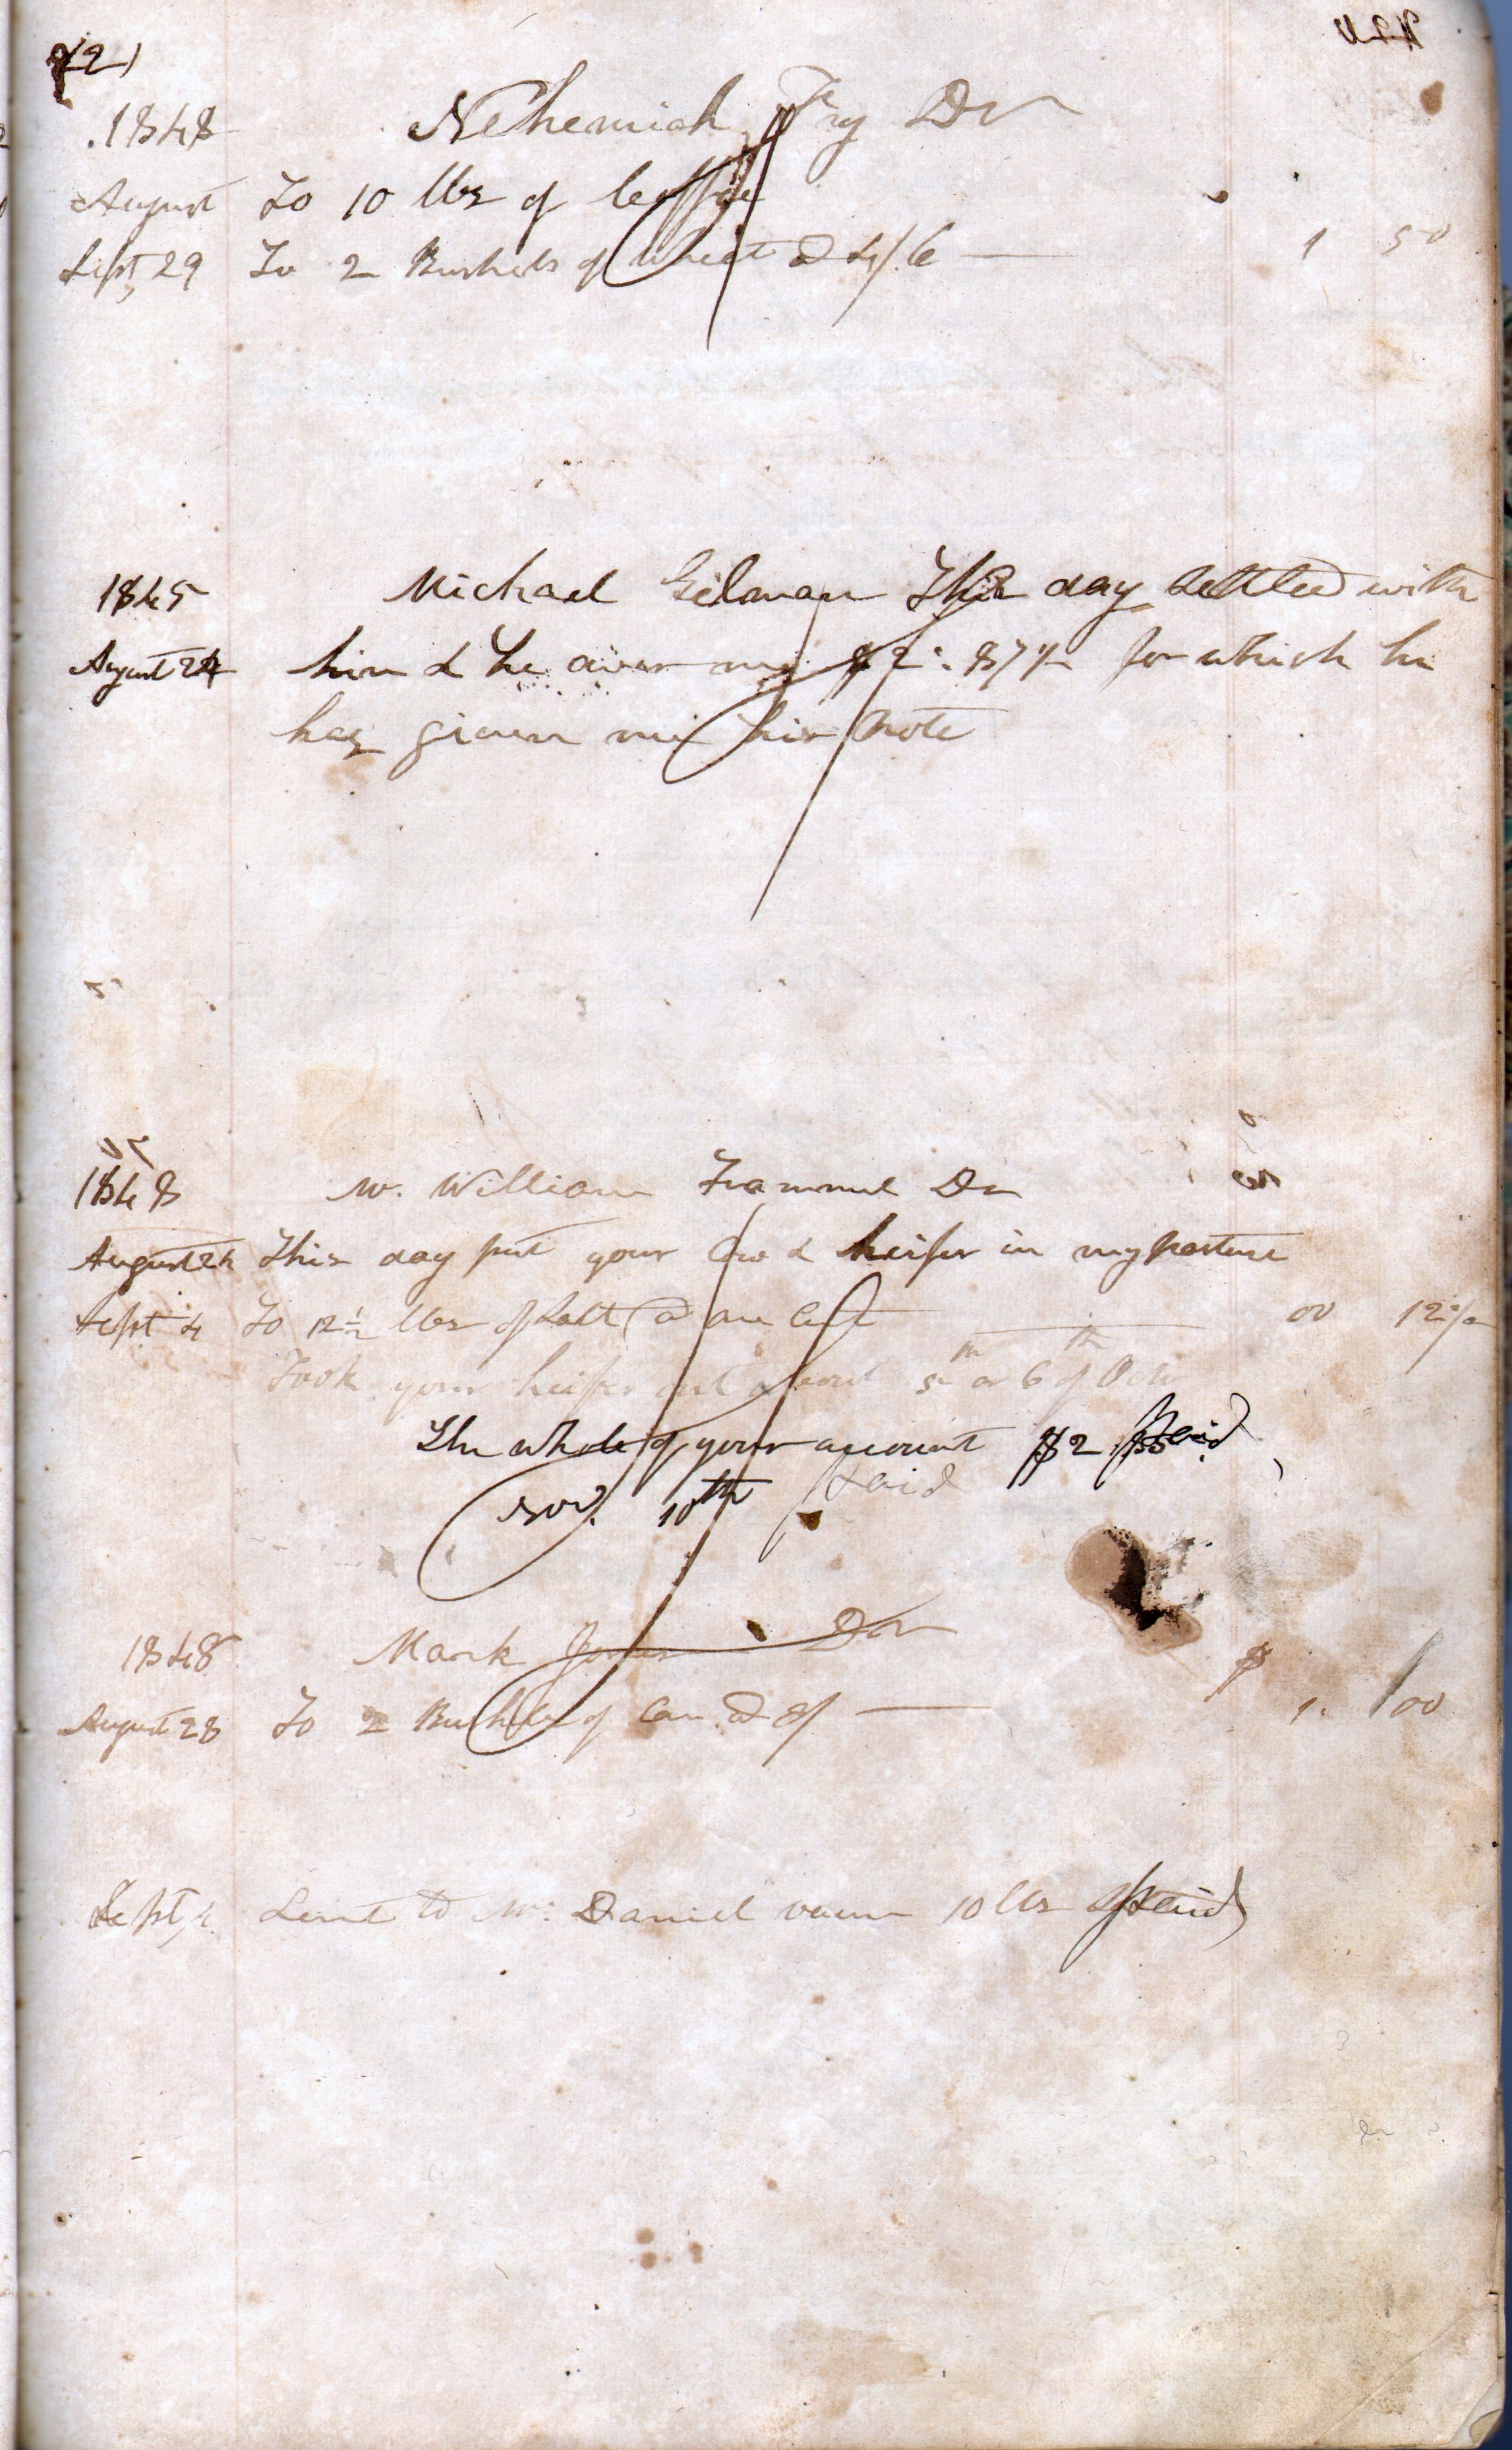 1848 Nehemiah Fry Dr
August To 10 lbs of Coffee
Sept, 29 To 2 Bushels of Wheat @ 4/6 — 1 50
1845 Michael Gilman This day Settled with
August 24 him & he owes me $2: 87½ for which he
has given me his Note
1848 W. William Trammel Dr
August 24 This day put your Cow & heifer in my pasture
Sept 4 To 12½ lbs of Salt @ one Cent 00 12½
Took your heifer out about 5th or 6th of Octo
The whole of your account $2 Paid
Nov. 10th Paid
1848 Mark Jones Dr $
August 28 To 2 Bushels of Corn @ — 1. 00
Sept, 4 Lent to Mr. Daniel 10 lbs Paid